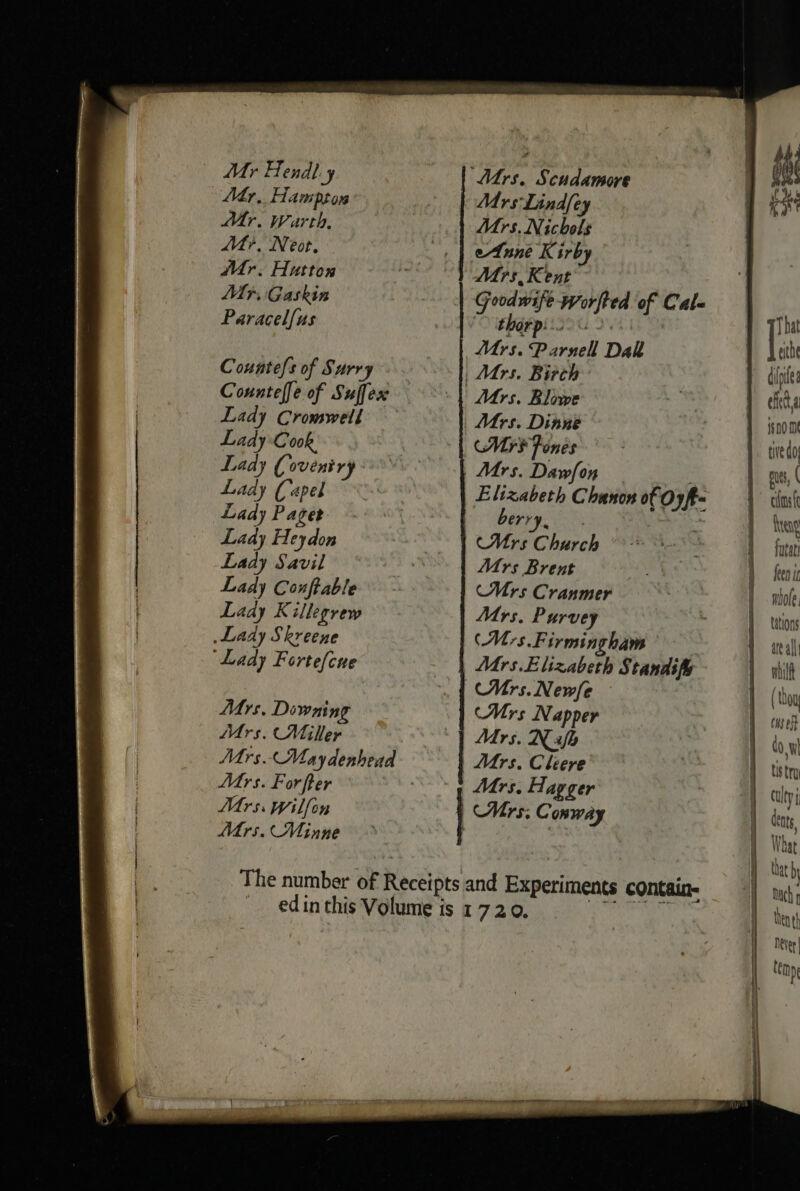 Mr Hendl.y
Mr. Hampton
Mr. Warth.
Mr. Neot.
Mr. Hutton
Mr. Gaskin
Paracelſus
Counteſs of Surry
Counteſſe of Suſſex
Lady Cromwell
Lady Cook
Lady Coventry
Lady Capel
Lady Paget
Lady Heydon
Lady Savil
Lady Conſtable
Lady Killegrew
Lady Skreene
Lady Forteſcue
Mrs. Downing
Mrs. Miller
Mrs. Maydenhead
Mrs. Forſter
Mrs. Wilſon
Mrs. Minne
Mrs. Scudamore
Mrs Lindſey
Mrs. Nichols
Anne Kirby
Mrs. Kent
Goodwife Worſted of Cal-
thorp.
Mrs. Parnell Dall
Mrs. Birch
Mrs. Blowe
Mrs. Dinne
Mrs Jones
Mrs. Dawſon
Elizabeth Chanon of Oyſt-
berry.
Mrs Church
Mrs Brent
Mrs Cranmer
Mrs. Purvey
Mrs. Firmingham
Mrs. Elizabeth Standiſh
Mrs. Newſe
Mrs Napper
Mrs. Naſh
Mrs. Cleere
Mrs. Hagger
Mrs. Conway
The number of Receipts and Experiments contain-
ed in this Volume is 1720.
That
eithe
diſpiſes
effect, a
is no m
tive do
gues, (
ſeen i
whoſe
tations
are all
whilſt
(thou
do, w
tis tru
dents,
What
that by
then th
never
tempe